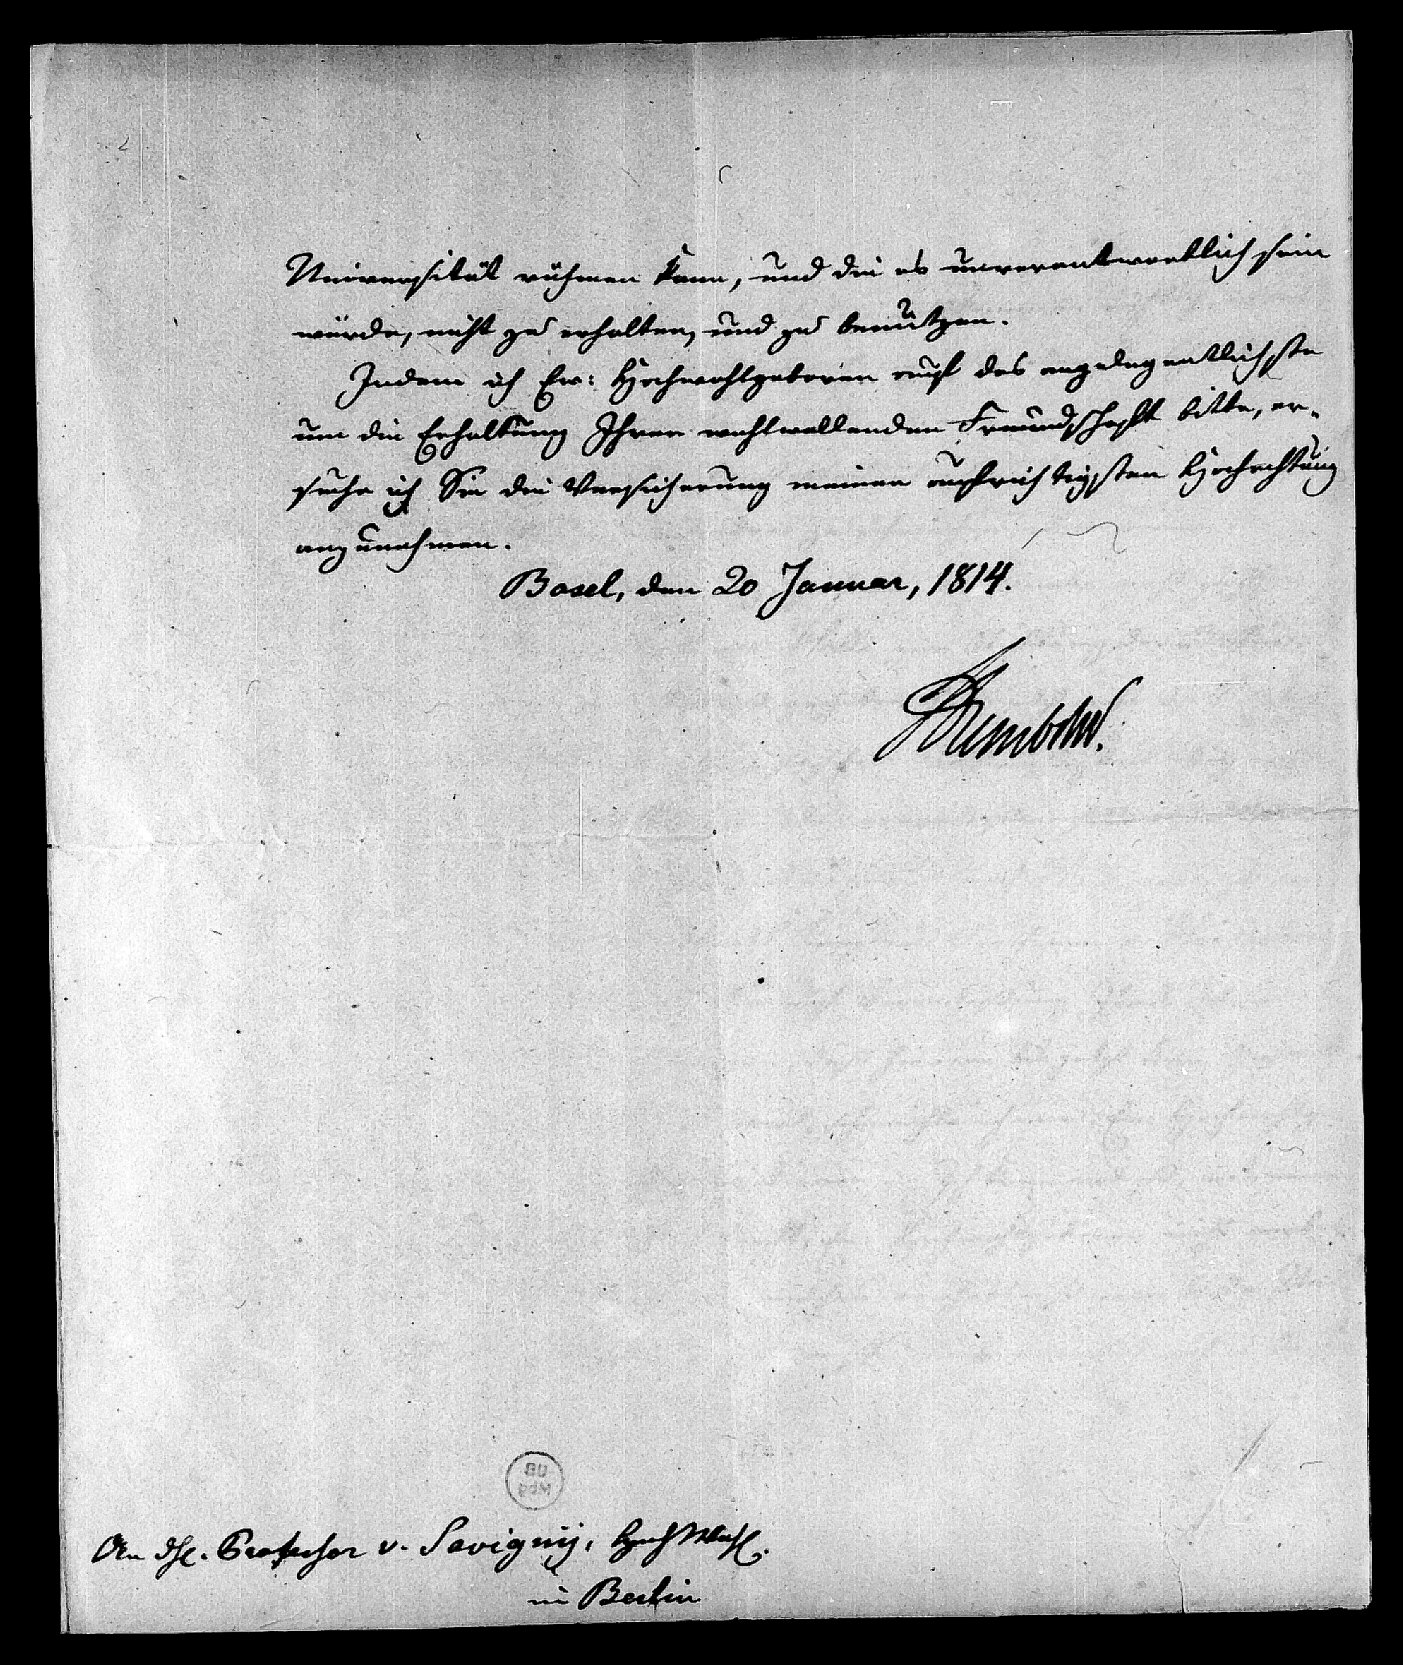 Universität rühmen kann, und die es unverantwortlich sein
würde, nicht zu erhalten, und zu benutzen.
Indem ich Ew: Hochwohlgeboren auf das angelegentlichste
um die Erhaltung Ihrer wohlwollenden Freundschaft bitte, er-
suche ich Sie die Versicherung meiner aufrichtigsten Hochachtung
anzunehmen.
Basel, den 20 Januar, 1814.
Humboldt.
An Professor v. Savigny,
in Berlin